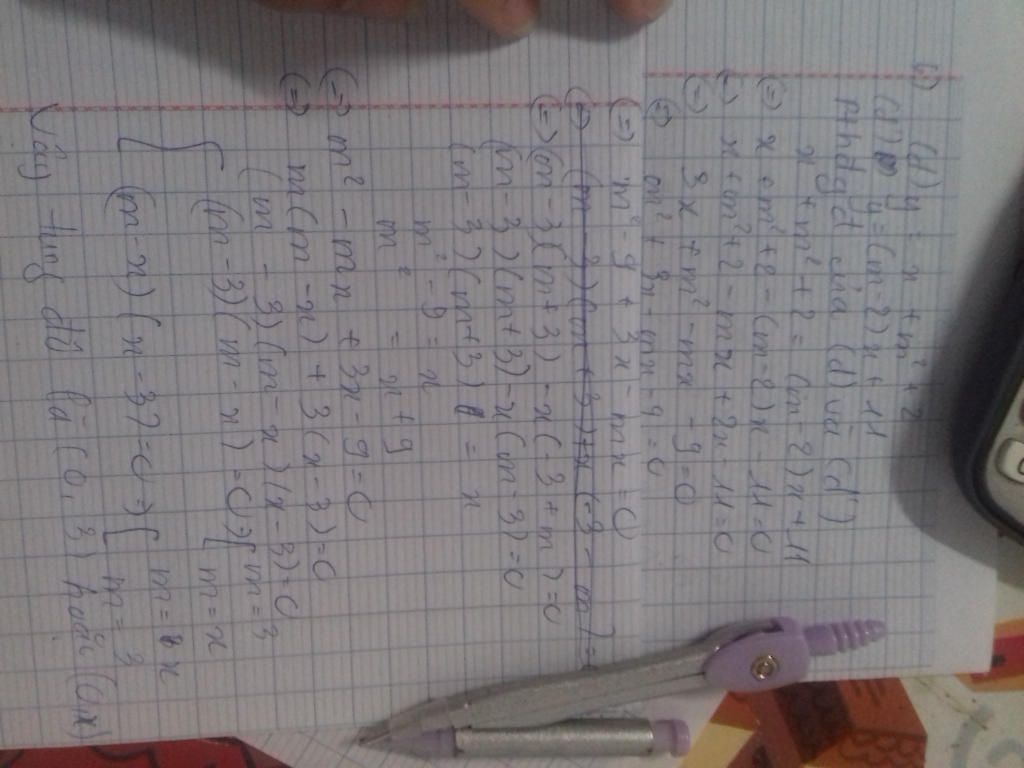 (d) y = x + m² + 2
(d') y = (m-2)x + 11
Pthđgđ của (d) và (d')
x + m² + 2 = (m-2)x + 11
(=) x + m² + 2 - (m-2)x - 11 = 0
(=) x + m² + 2 - mx + 2x - 11 = 0
(=) 3x + m² - mx - 9 = 0
(=) m² + 3x - mx - 9 = 0
(=) m² - 9 + 3x - mx = 0
(=) (m-3)(m+3) - x(-3+m) = 0
(m-3)(m+3) - x(m-3) = 0
(m-3)(m+3) = x
m² - 9 = x
m² = x + 9
(=) m² - mx + 3x - 9 = 0
(=) m(m-x) + 3(x-3) = 0
(m-3)(m-x)(x-3) = 0
(m-3)(m-x) = 0 => [ m = 3
m = x
(m-x)(x-3) = 0 => [ m = x
m = 3
Vậy tung độ là (0,3) hoặc (0,x)